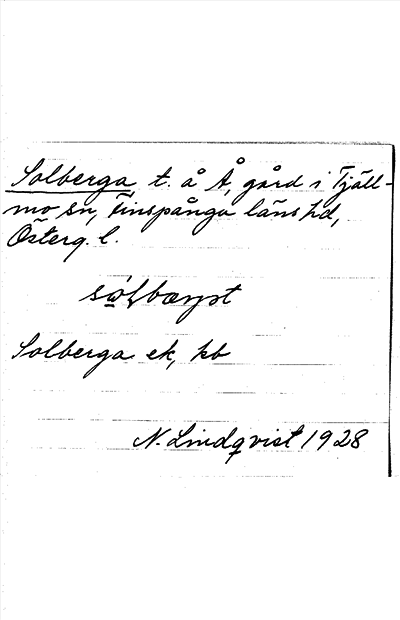 Solberga, t. å Å, gård i Tjäll-
mo sn, Finspånga läns hd,
Österg. l.
Solberga ek, kb
N. Lindqvist 1928